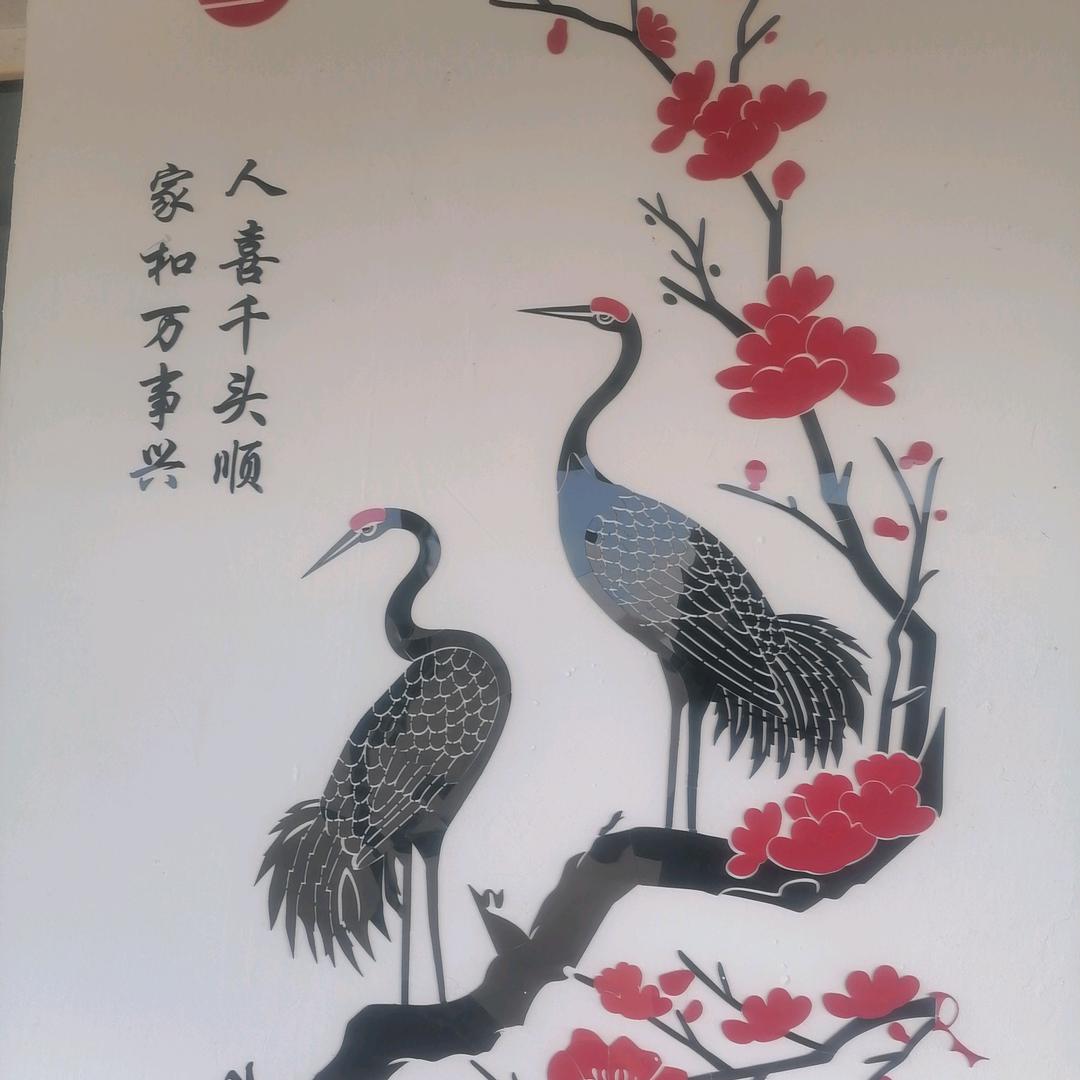 人喜千头顺
家和万事兴